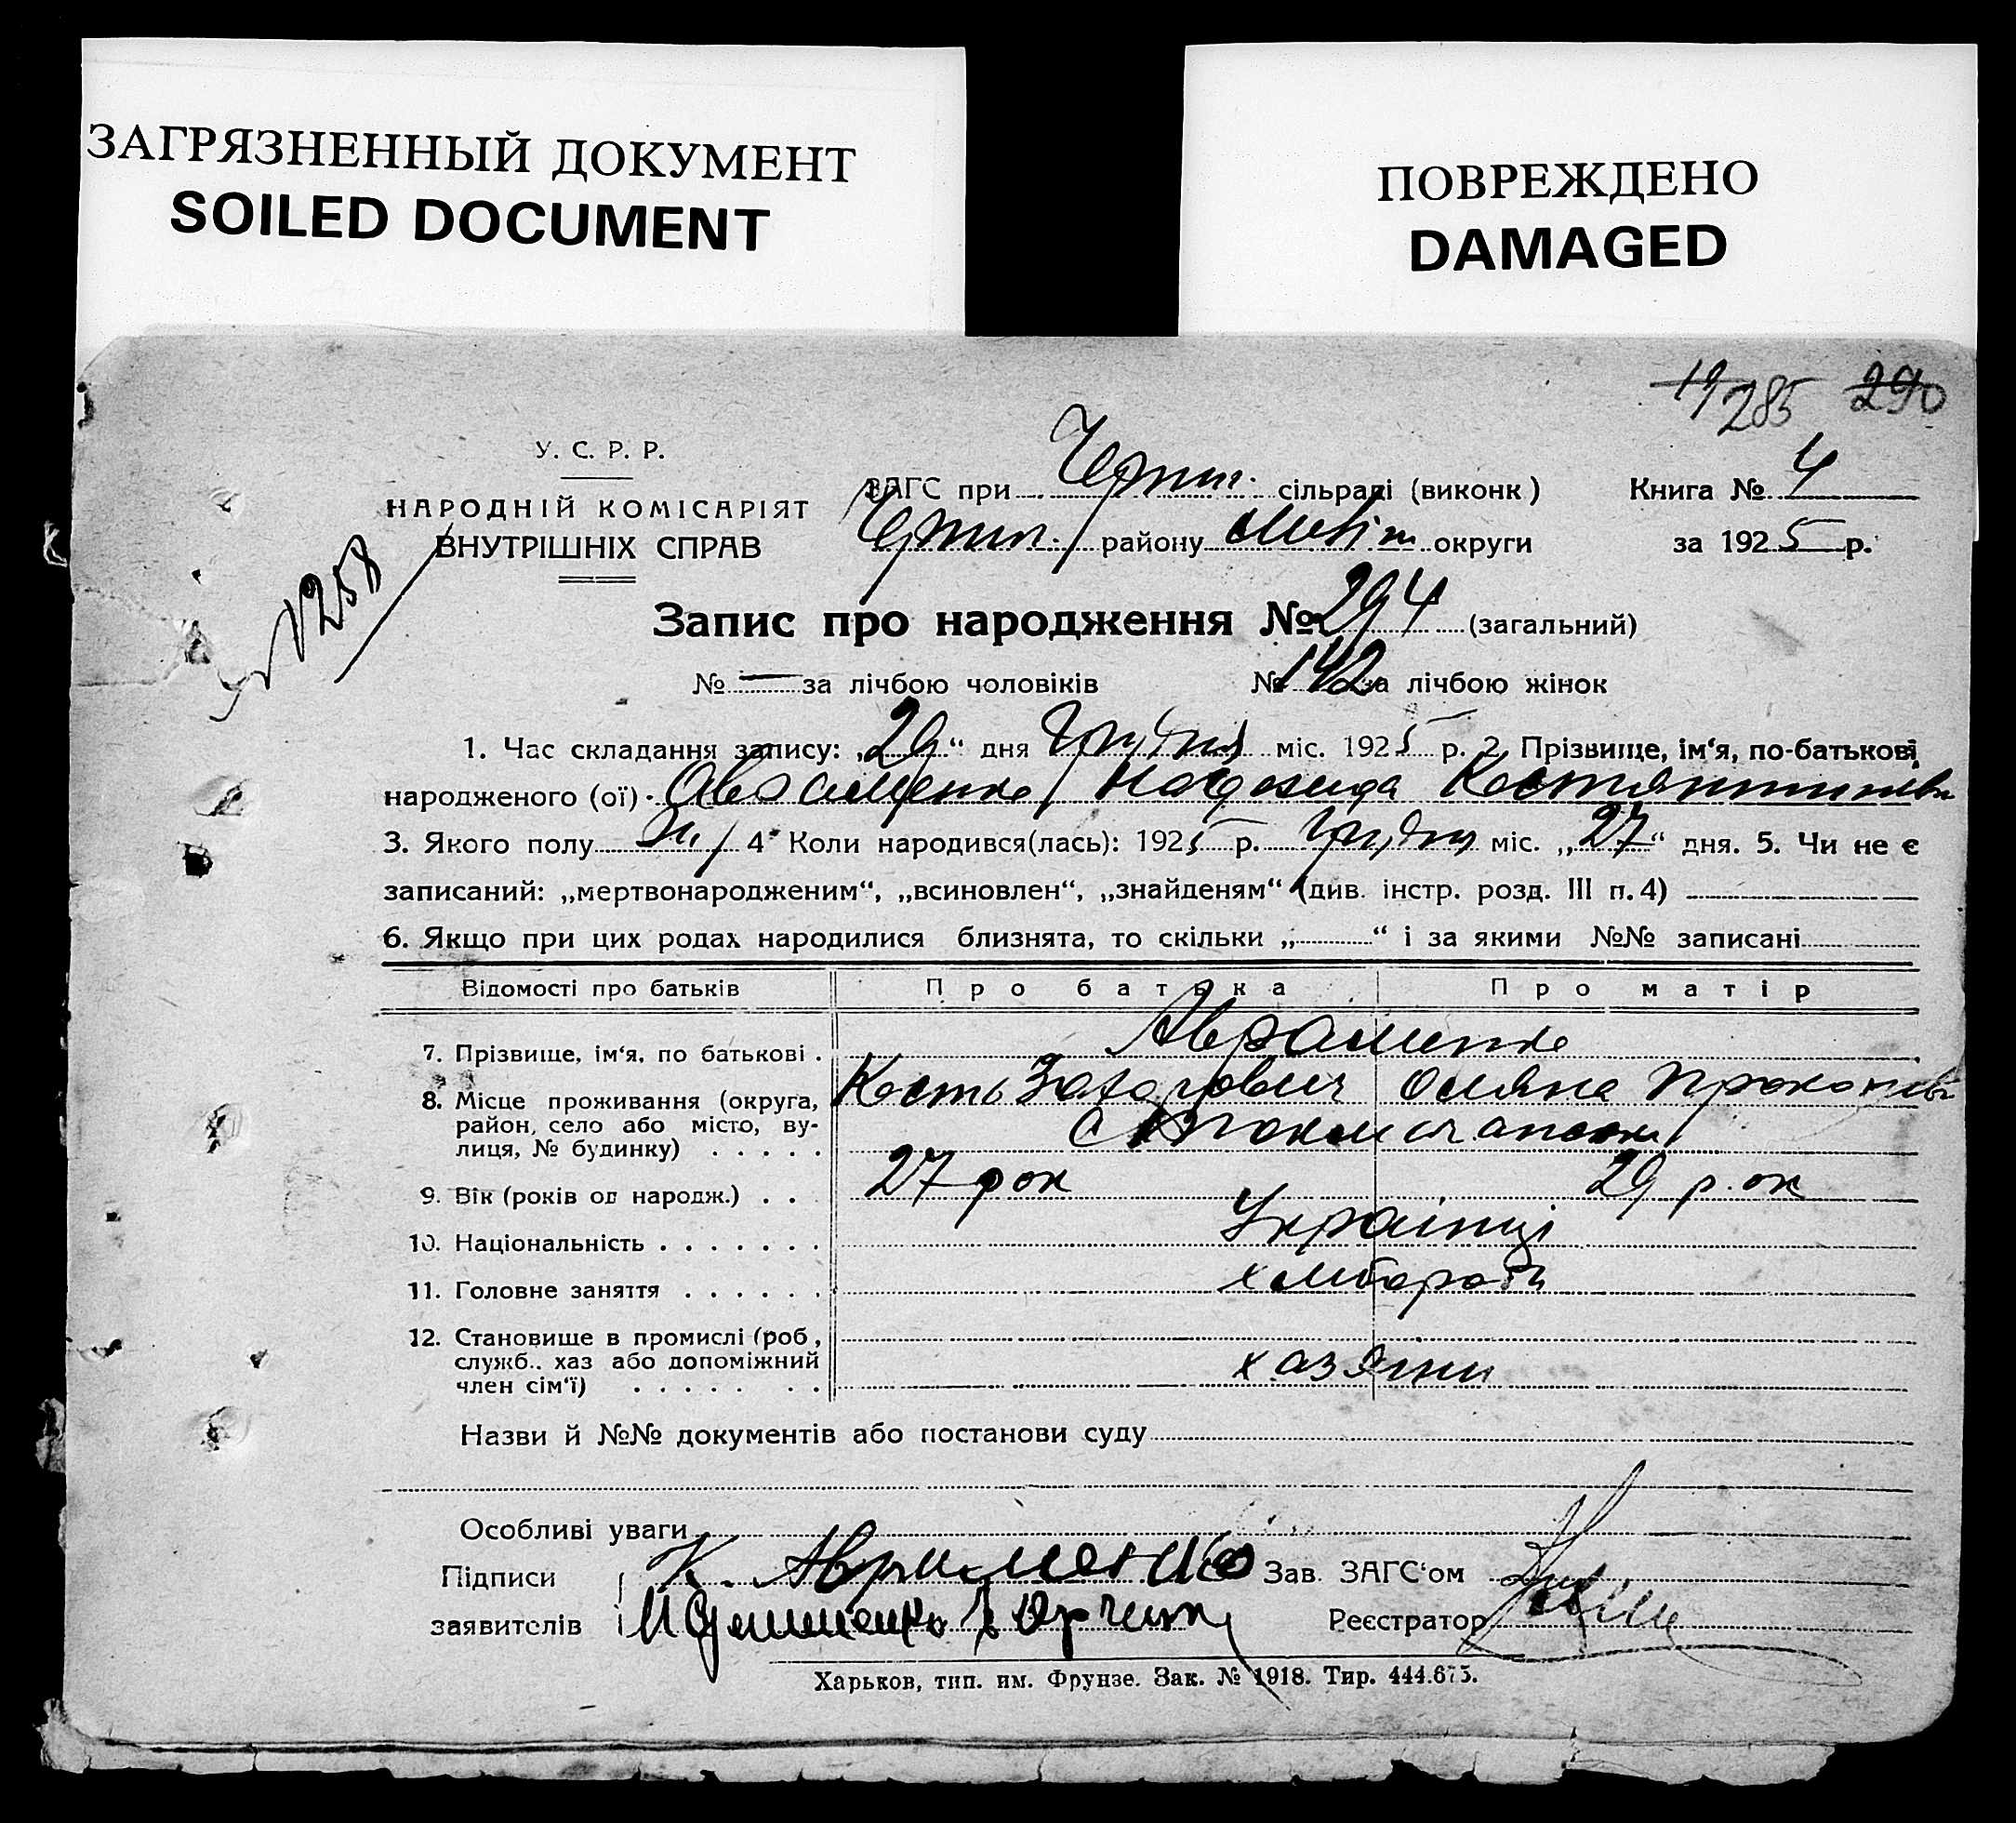 ЗАГРЯЗНЕННЫЙ ДОКУМЕНТ
SOILED DOCUMENT
ПОВРЕЖДЕНО
DAMAGED
19 285 290
У. С. Р. Р.
НАРОДНІЙ КОМІСАРІЯТ
ВНУТРІШНІХ СПРАВ
1258
ЗАГС при сільраді (виконк)
району округи
Книга № 4
за 1925 р.
Запис про народження № 294 (загальний)
№ — за лічбою чоловіків № 142 за лічбою жінок
1. Час складання запису: „29“ дня Грудня міс. 1925 р. 2. Прізвище, ім‘я, по-батькові
народженого (ої) Авраменко Надежда Костянтинівн
3. Якого полу ж. 4. Коли народився(лась): 1925 р. Грудня міс. „27“ дня. 5. Чи не є
записаний: „мертвонародженим“, „всиновлен“, „знайденям“ (див. інстр. розд. III п. 4)
6. Якщо при цих родах народилися близнята, то скільки „ “ і за якими №№ записані
Відомості про батьків Про батька Про матір
7. Прізвище, ім‘я, по батькові . Авраменко
Кость Захарович Оляна Прокопів
8. Місце проживання (округа,
район, село або місто, ву-
лиця, № будинку) . . . . .
9. Вік (років од народж.) . . 27 рок 29 рок
10. Національність . . . . . . . Українці
11. Головне заняття . . . . . . хлібороби
12. Становище в промислі (роб.,
служб., хаз або допоміжний
член сім‘ї) . . . . . . . хазяїни
Назви й №№ документів або постанови суду
Особливі уваги
Підписи К. Авраменко Зав. ЗАГС‘ом
заявителів Реєстратор
Харьков, тип. им. Фрунзе. Зак. № 1918. Тир. 444.675.